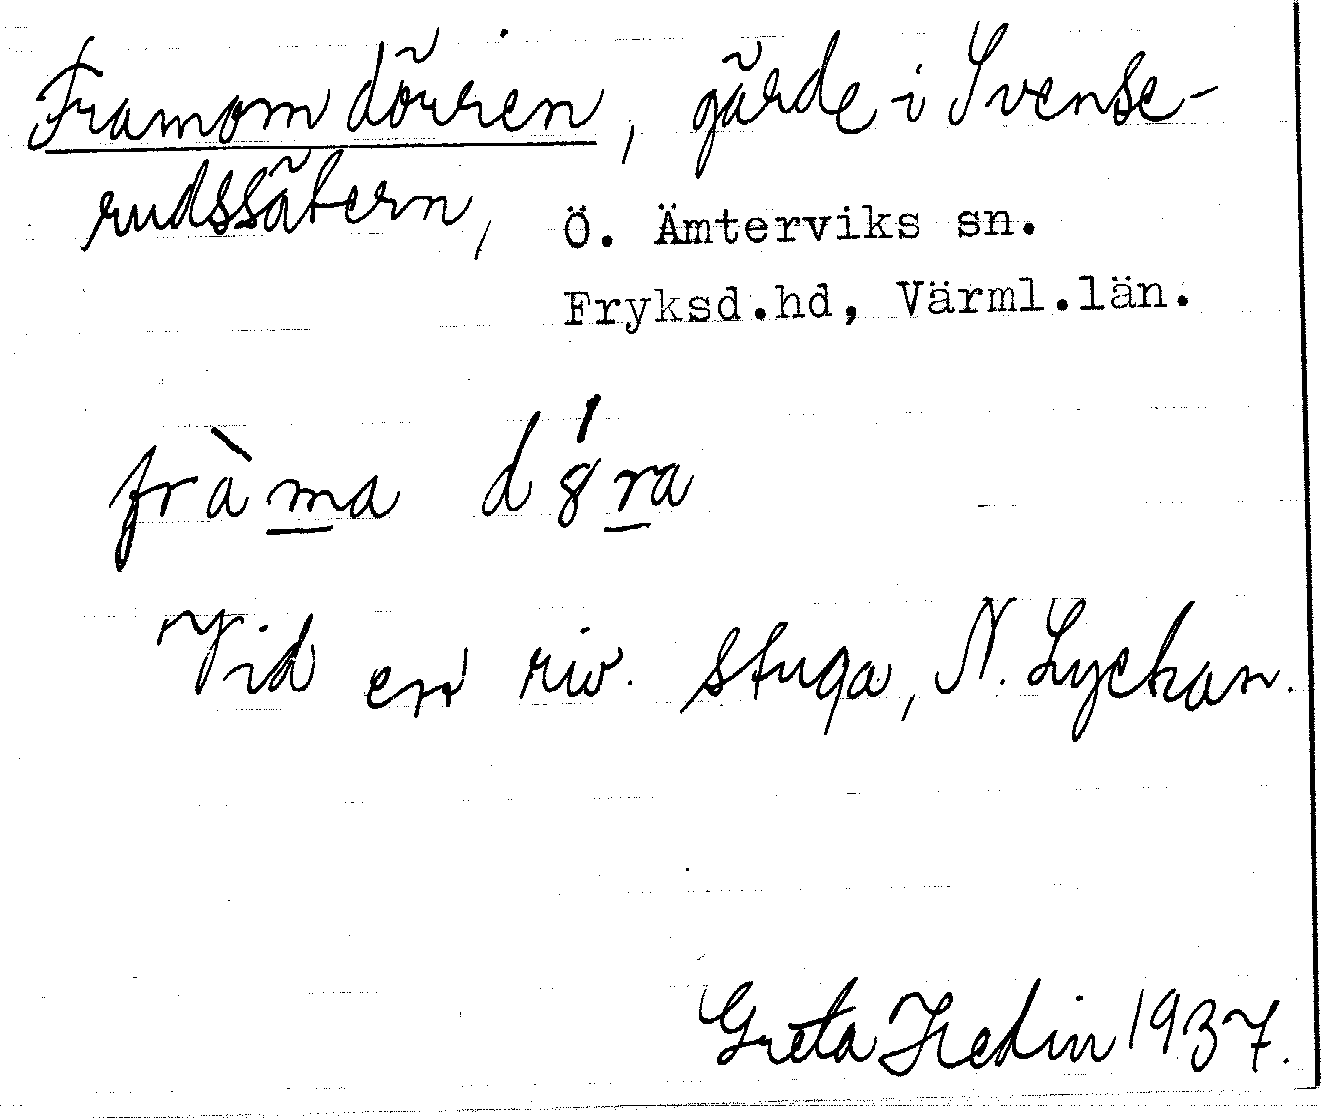 Framom dörren, gärde i Svense-
rudssätern, Ö. Ämterviks sn.
Fryksd.hd, Värml.län.
fràma d8́ra
Vid en riv. stuga, N. Lyckan.
Greta Hedin 1937.